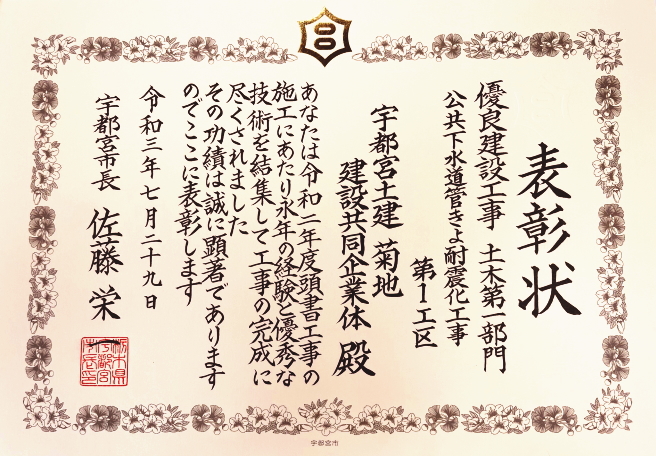 表彰状
優良建設工事 土木第一部門
公共下水道管きょ耐震化工事
第1工区
宇都宮土建 菊地
建設共同企業体 殿
あなたは令和二年度頭書工事の
施工にあたり永年の経験と優秀な
技術を結集して工事の完成に
尽くされました
その功績は誠に顕著であります
のでここに表彰します
令和三年七月二十九日
宇都宮市長 佐藤栄
栃木県
宇都宮
市長印
宇都宮市